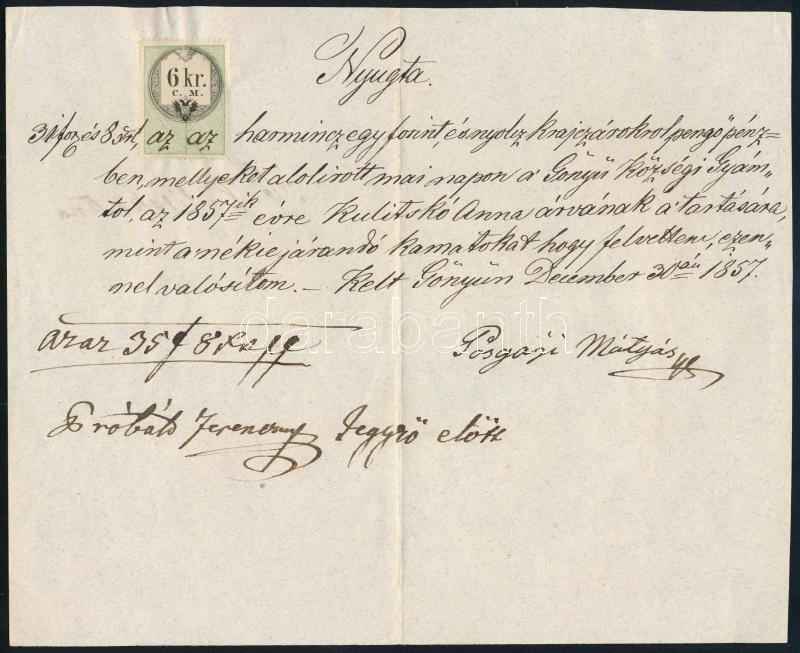 Nyugta.
6 kr.
C. M.
31 for. és 8 xr. az az harmincz egy forint, és nyolcz krajczárokrol, pengő pénz=
ben, mellyeket alolirott mai napon a' Gönyü Községi Gyám„
tol, az 1857ik évre Kulitskó Anna árvának a' tartására,
mint a nékie járandó kamatokat hogy felvettem, ezen„
nel valósítom. – Kelt Gönyün December 30án 1857.
azaz 35 f 8 xr pp
Posgaji Mátyás
Próbáld Ferencz Jegyző előtt
darabanth